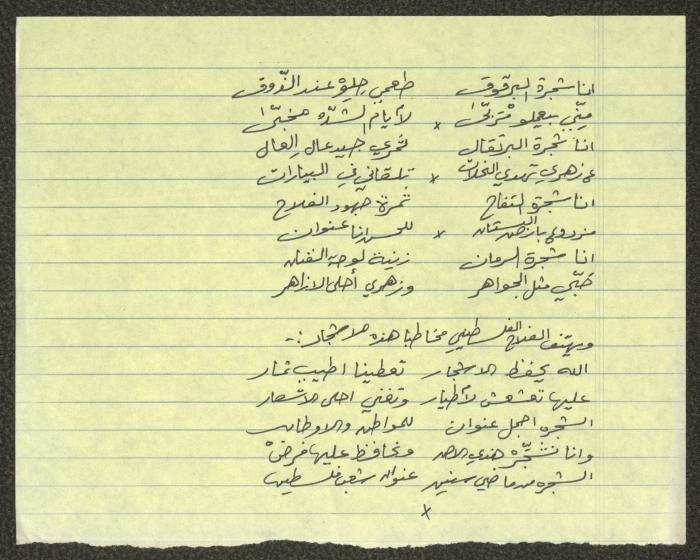 انا شجرة البرقوق طعمي حلو عند الذّوق
منّي بيعملو مْربّى لأيام الشدّه مخبّى
انا شجرة البرتقال ثمري جيد عال العال
ع زهري تهدي النحلات × تلقاني في البيارات
انا شجرة التفاح ثمرة جهود الفلاح
مزروعه بارض البستان × للحسن انا عنوان
انا شجرة الرمان زينة لوحة الفنان
حَبّي مثل الجواهر وزهري أحلى الازاهر
ويهتف الفلاح الفلسطيني مخاطبا هذه الاشجار :-
الله يحفظ الاشجار تعطينا اطيب ثمار
عليها تعشعش لأطيار وتغني احلى الاشعار
الشجره اجمل عنوان للمواطن والاوطان
وانا نشجّره هذي الارض ونحافظ عليها فرضْ
الشجره من ماضي سنين عنوان شعب فلسطين
×